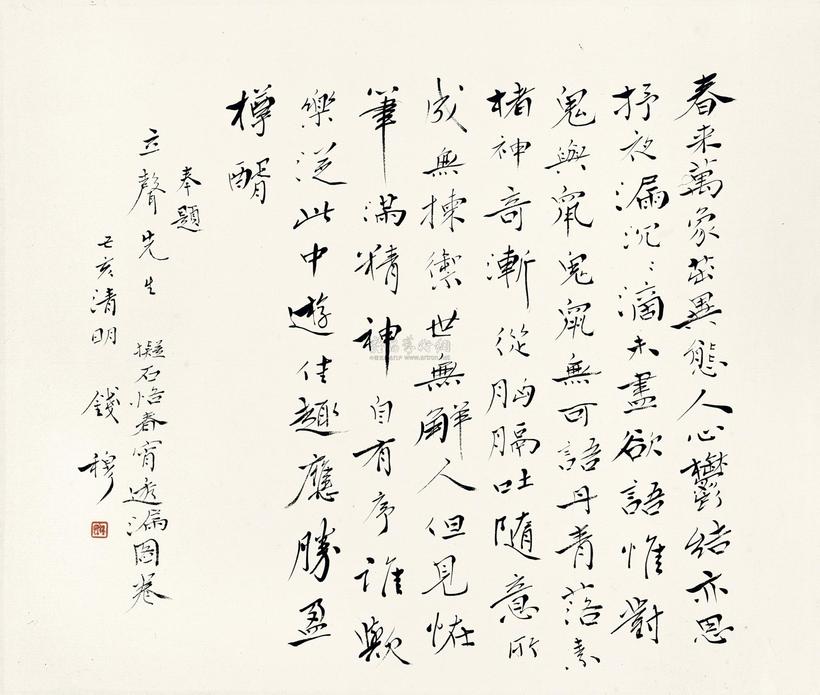 春來萬象茁異態人心鬱結亦思
抒夜漏沉〻滴未盡欲語惟對
鬼與鼠鬼鼠無可語丹青落素
楮神奇漸從胸膈吐隨意所
成無揀禦世無解人但見怪
筆滿精神自有序誰歟
樂從此中遊佳趣應勝盈
樽醑
奉題
立聲先生
擬石恪春宵透漏圖卷
己亥清明 錢穆